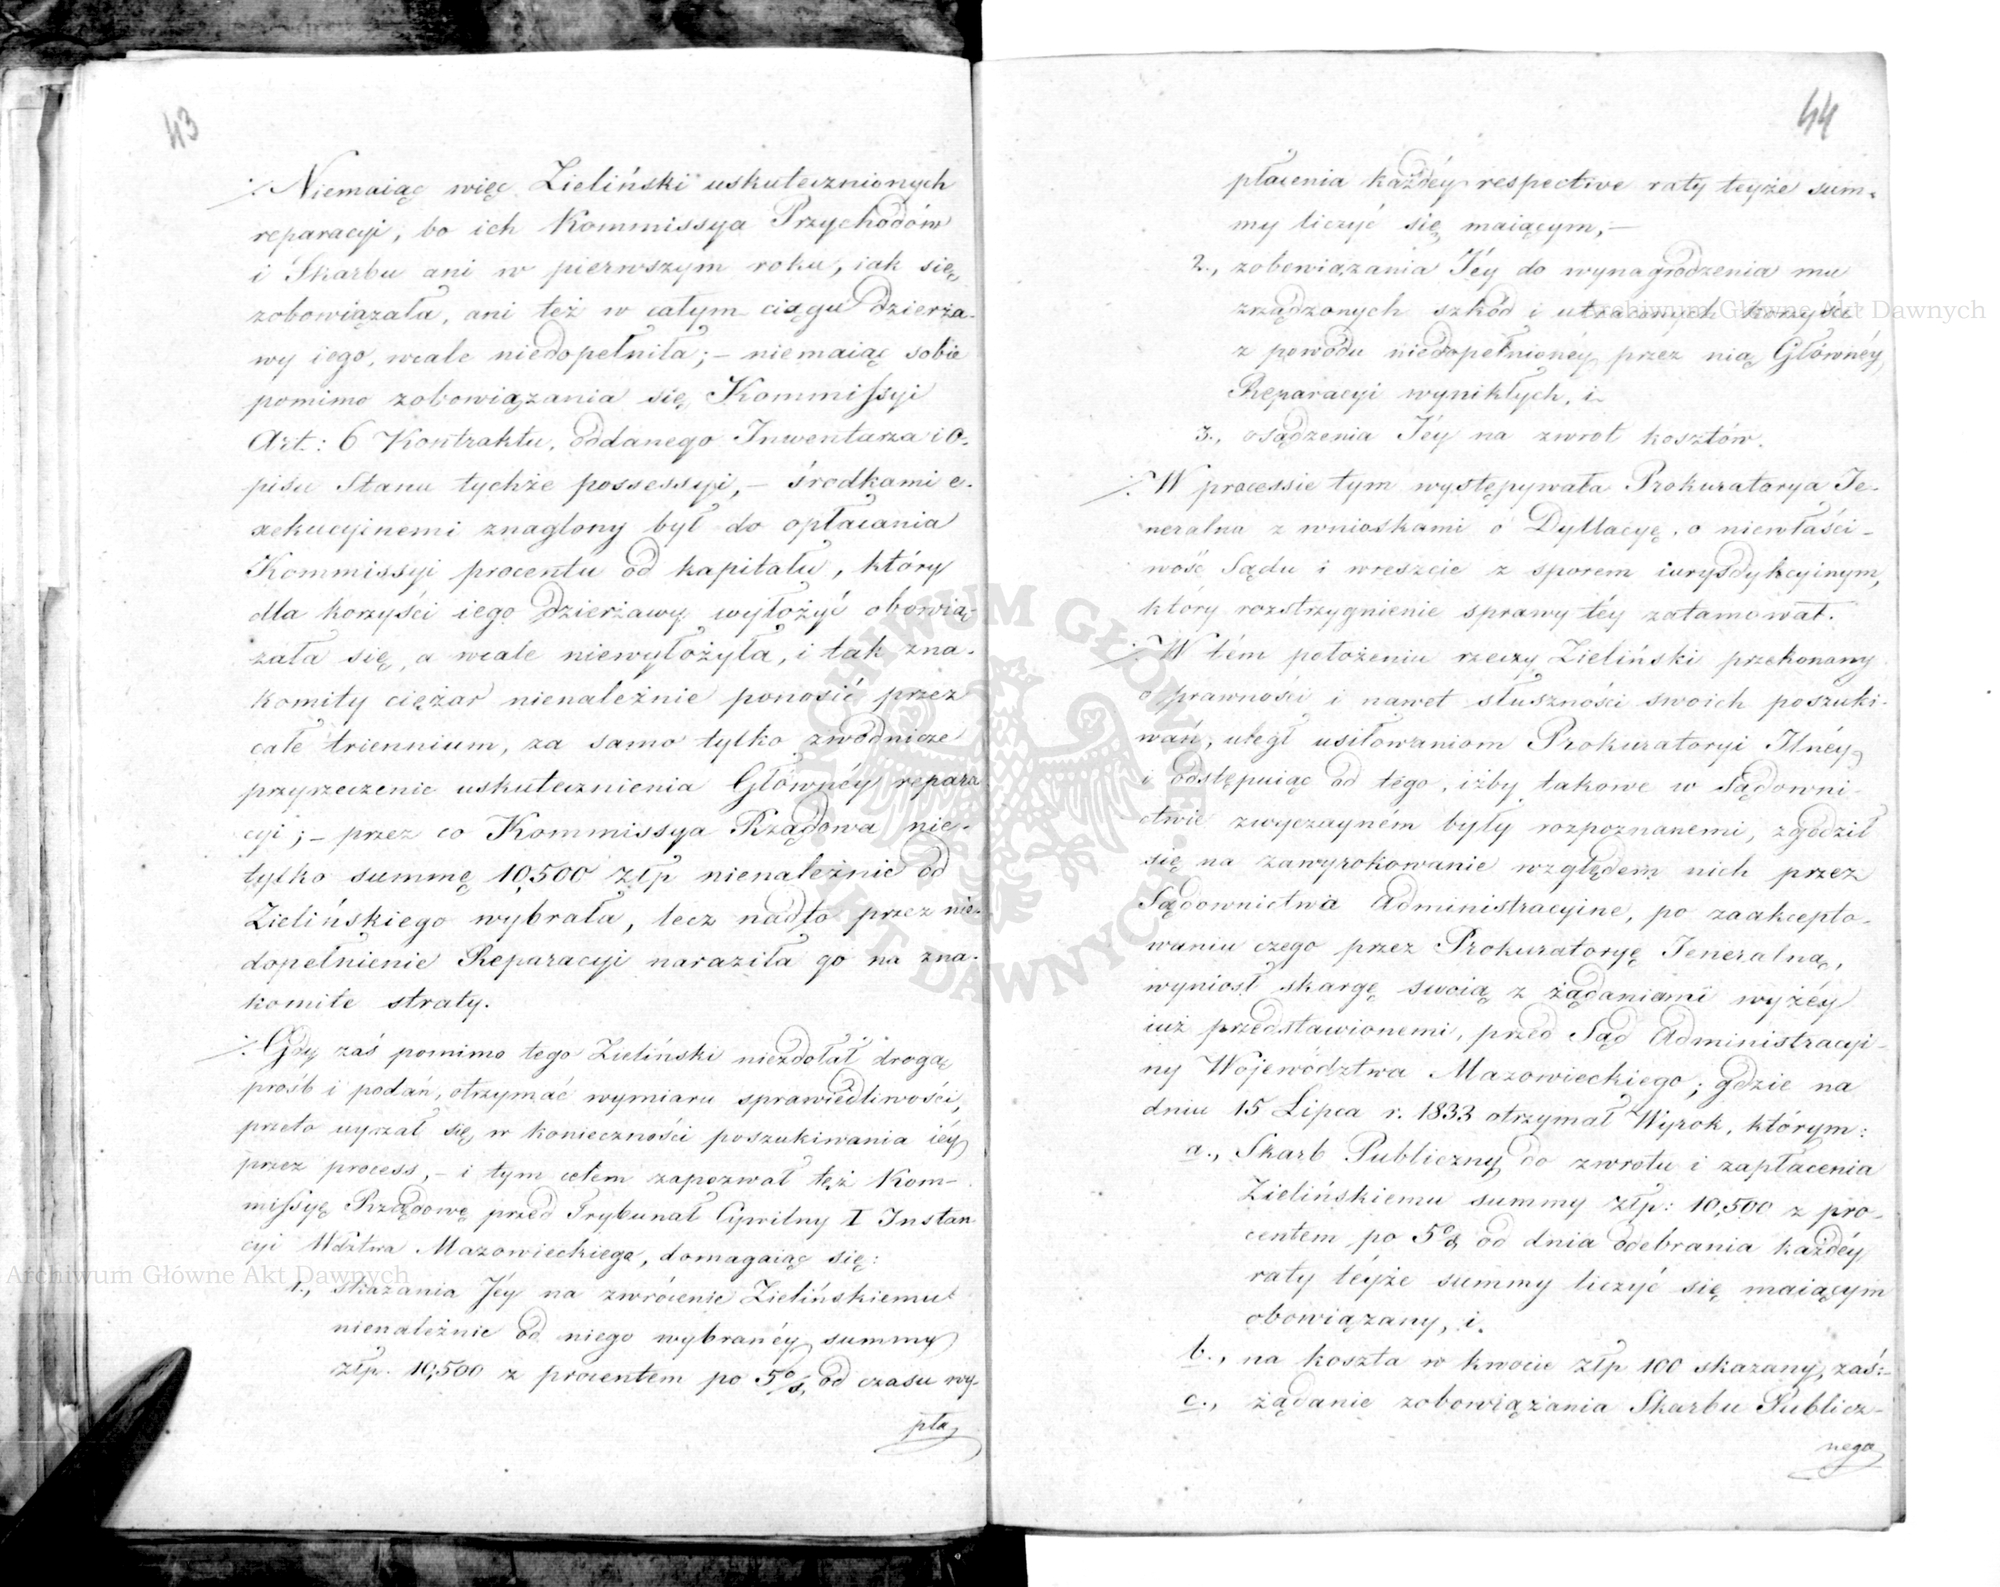 43
⁒ Niemaiąc więc Zieliński uskutecznionych
reparacyi, bo ich Kommissya Przychodów
i Skarbu ani w pierwszym roku, iak się
zobowiązała, ani też w całym ciągu Dzierża-
wy iego, wcale niedopełniła; – niemaiąc sobie
pomimo zobowiązania się Kommissyi
Art: 6 Kontraktu, oddanego Inwentarza i O-
pisu Stanu tychże possessyi, – środkami e-
xekucyinemi znaglony był do opłacania
Kommissyi procentu od kapitału, który
dla korzyści iego Dzierżawy wyłożyć obowią-
zała się, a wcale niewyłożyła, i tak zna-
komity ciężar nienależnie ponosić przez
całe triennium, za samo tylko zwodnicze
przyrzeczenie uskutecznienia Głównéy repara
cyi; – przez co Kommissya Rządowa nie-
tylko summę 10,500 Złp nienależnie od
Zielińskiego wybrała, lecz nadto przez nie-
dopełnienie Reparacyi naraziła go na zna-
komite straty.
⁒ Gdy zaś pomimo tego Zieliński niezdołał drogą
prośb i podań, otrzymać wymiaru sprawiedliwości,
przeto uyrzał się w konieczności poszukiwania iéy
przez process, – i tym celem zapozwał też Kom-
missyę Rządowę przed Trybunał Cywilny I Instan
cyi Wdztwa Mazowieckiego, domagaiąc się:
1., skazania Jéy na zwrócenie Zielińskiemu
nienależnie od niego wybranéy summy
złp. 10,500 z procentem po 5%, od czasu wy-
pła
44
płacenia każdéy respective raty teyże sum-
my liczyć się maiącym; –
2., zobowiązania Jéy do wynagrodzenia mu
zrządzonych szkód i utraconych korzyści
z powodu niedopełnionéy przez nią Głównéy
Reparacyi wynikłych, i
3., osądzenia Jéy na zwrot kosztów.
⁒ W processie tym występywała Prokuratorya Je-
neralna z wnioskami o Dyllacyę, o niewłaści-
wość Sądu i wreszcie z sporem iurysdykcyinym,
który rozstrzygnienie sprawy téy zatamował.
⁒ W tém położeniu rzeczy Zieliński przekonany
o prawności i nawet słuszności swoich poszuki-
wań, uległ usiłowaniom Prokuratoryi Jlnéy
i odstępuiąc od tego, iżby takowe w Sądowni-
ctwie zwyczayném były rozpoznanemi, zgodził
się na zawyrokowanie względem nich przez
Sądownictwa Administracyine, po zaakcepto-
waniu czego przez Prokuratoryę Jeneralną,
wyniosł skargę swoią z żądaniami wyżéy
iuż przedstawionemi, przed Sąd Administracyi-
ny Województwa Mazowieckiego; gdzie na
dniu 15 Lipca r. 1833 otrzymał Wyrok, którym:
a., Skarb Publiczny do zwrotu i zapłacenia
Zielińskiemu summy złp: 10,500 z pro-
centem po 5% od dnia odebrania każdéy
raty téyże summy liczyć się maiącym
obowiązany, i.
b., na koszta w kwocie złp 100 skazany, zaś:-
c., żądanie zobowiązania Skarbu Publicz-
nego